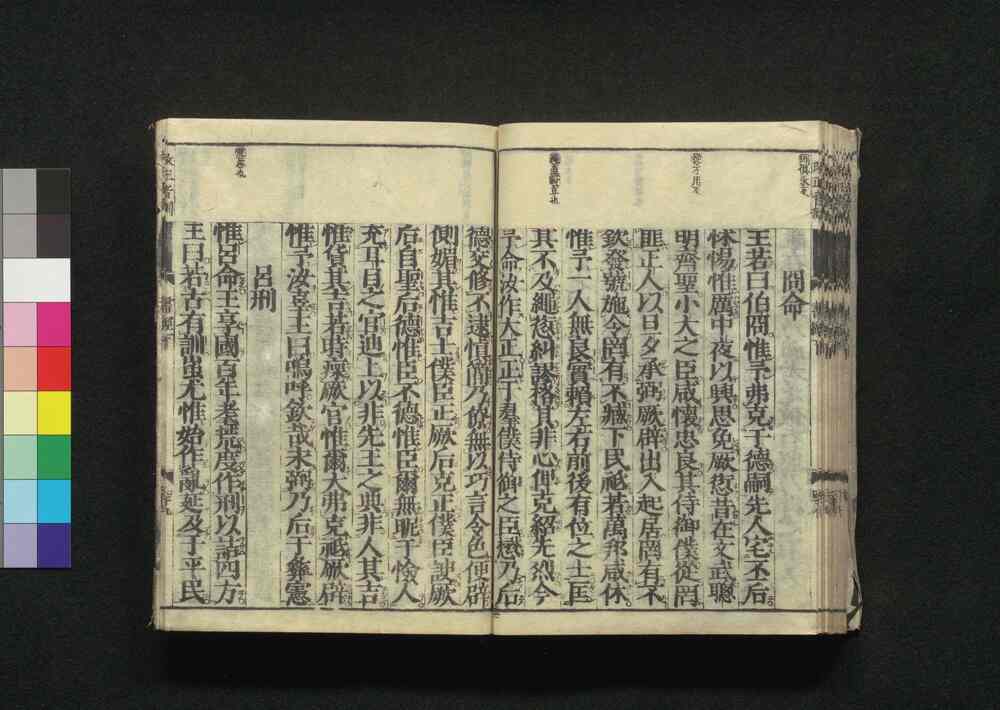 冏命
王若曰伯冏惟予弗克于德嗣先人宅丕后
怵惕惟厲中夜以興思免厥愆昔在文武聰
明齊聖小大之臣咸懷忠良其侍御僕從罔
匪正人以旦夕承弼厥辟出入起居罔有不
欽發號施令罔有不臧下民祗若萬邦咸休
惟予一人無良實賴左右前後有位之士匡
其不及繩愆糾謬格其非心俾克紹先烈今
予命汝作大正正于羣僕侍御之臣懋乃后
德交修不逮愼簡乃僚無以巧言令色便辟
側媚其惟吉士僕臣正厥后克正僕臣諛厥
后自聖后德惟臣不德惟臣爾無昵于憸人
充耳目之官迪上以非先王之典非人其吉
惟貨其吉若時瘝厥官惟爾大弗克祗厥辟
惟予汝辜王曰嗚呼欽哉永弼乃后于彝憲
呂刑
惟呂命王享國百年耄荒度作刑以詰四方
王曰若古有訓蚩尤惟始作亂延及于平民